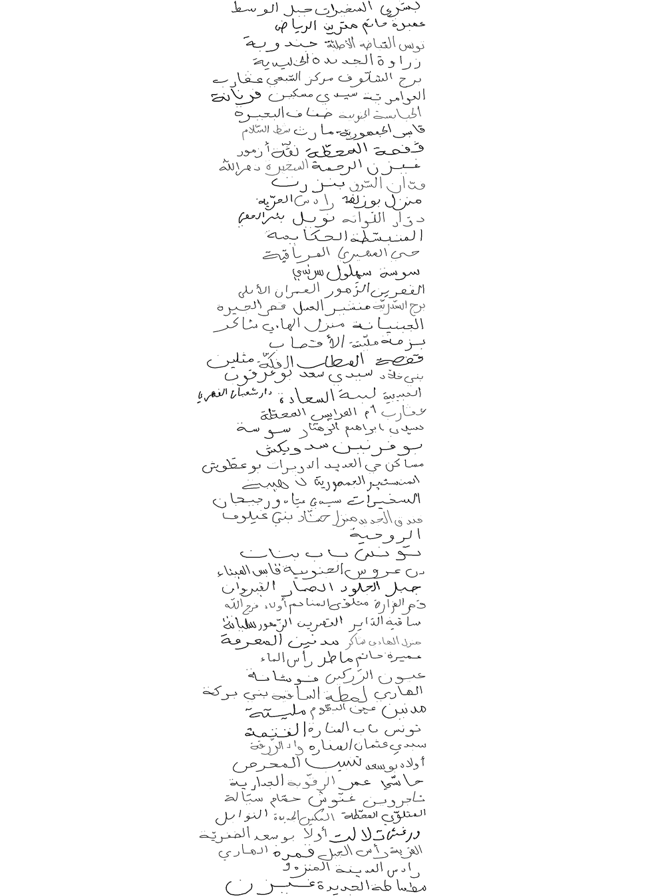 بشري الصخيرات جبل الوسط
عميرة حاتم منزين الرياض
تونس القباضة الأصلية جندوبة
زراوة الجديدة الخليدية
برج الشلوف مركز الشعبي عقارب
العوامرية سيدي مسكين فرنانة
الحبابسة الجنوبية ضفاف البحيرة
قابس الجمهورية مارث شط السلام
قفصة المحطة لفتة أزمور
غيزن الرحمة الصخيرة دهر الله
فدان السوق بنزرت
منزل بوزلفة رادس العزيبة
دوار اللواتة نويل بئر الحفي
المنبسطة الحكايمة
حي الصخيري المرناقية
سوسة سهلول سرسي
القصرين الزهور العمران الأعلى
برج السدرية هنشير العسل قصر الحيرة
الجبنيانة منزل الهادي شاكر
بزمة مليتة الأقصاب
قفصة المطار الرقبة مثلين
بني خلاد سيدي سعد بوعرقوب
الحبيبية لبنة السعادة دار شعبان الفهري
عقارب أم العرايس المحطة
سيدي ابراهيم الزهار سوسة
بوقرنين سدويكش
مساكن حي الجديد الدويرات بوعطوش
المنستير الجمهورية لا هيبة
السخيرات سيدي عياد ورجيحان
فندق الجديد منزل حماد بني غيلوف
الروحية
تونس باب بنات
بن عروس الجنوبية قابس الميناء
جبل الجلود الصمار القيروان
قصر القوارة ملتقى المناجم أولاد فرج الله
ساقية الداير القصرين الزهور سليانة
منزل الهادي شاكر مدنين المعرفة
عميرة حاتم ماطر رأس الماء
عيون الزركين فوشانة
الهاري لمطة الساحلية بني بركة
مدنين عين الدقوم مليتة
تونس باب المنارة الغنيمة
سيدي عثمان المنارة واد الزرقة
أولاد بوسعد نسيب المحرص
حاشي عمر الرقوبة الجدارية
تاجروين عتوش حمام سيالة
المتلوي المحطة السكن الجديدة النوايل
ورغش تلالت أولاد بوسعد الصخرية
القرية رأس الجبل قمرة الهاري
رادس المدينة المنزه 9
مطماطة الجديدة غيزن